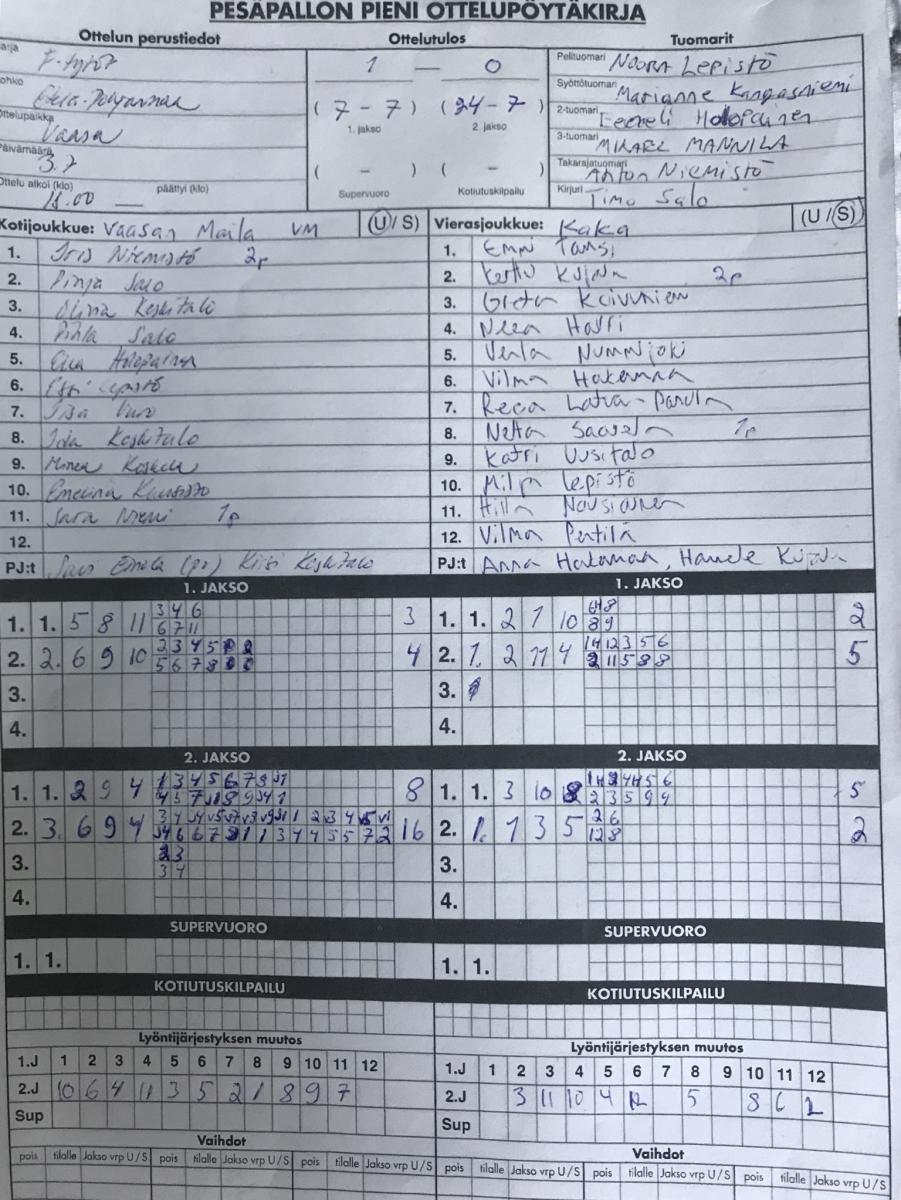 PESÄPALLON PIENI OTTELUPÖYTÄKIRJA
Ottelun perustiedot
Ottelutulos
Tuomarit
arja F-tytöt
ohko
Ottelupaikka Vaasa
Päivämäärä 3.7
Ottelu alkoi (klo) 18.00 päättyi (klo)
1 — 0
( 7 - 7 ) ( 24 - 7 )
1. jakso 2. jakso
( - ) ( - )
Supervuoro Kotiutuskilpailu
Pelituomari NOORA LEPISTÖ
Syöttötuomari Marianne Kangasniemi
2-tuomari Eeveli Holopainen
3-tuomari MIKAEL MANNILA
Takarajatuomari Anton Niemistö
Kirjuri Timo Salo
Kotijoukkue: Vaasan Maila VM (U/S)
1. Iris Niemistö 2p
2. Pinja Salo
3. Olivia Keskitalo
4. Pihla Salo
5. Holopainen
6. Lepistö
7.
8. Ida Keskitalo
9. Minea Koskela
10. Emeliina
11. Sara Niemi 1p
12.
PJ:t Keskitalo
Vierasjoukkue: KaKa (U/S)
1. Emmi Tansi
2. Kerttu Kujala 2p
3. Greta Koivuniemi
4. Neea Harri
5. Venla Nummijoki
6. Vilma Hakamaa
7. Reea Latva-Panula
8. Netta Saarela 1p
9. Katri Uusitalo
10. Milja Lepistö
11. Hilla Nousiainen
12. Vilma Penttilä
PJ:t Anna Hakamaa, Kujala
1. JAKSO
1. 1. 5 8 11 3 4 6 3
6 7 11
2. 2. 6 9 10 2 3 4 5 4
5 6 7 8
3.
4.
1. JAKSO
1. 1. 2 7 10 2
8 9
2. 1. 2 11 4 5
3.
4.
2. JAKSO
1. 1. 2 9 4 8
2. 3. 6 9 4 16
3. 2 3
3 4
4.
2. JAKSO
1. 1. 3 10 8 5
2 3 5 9 4
2. 1. 1 3 5 2 6 2
12 8
3.
4.
SUPERVUORO
1. 1.
SUPERVUORO
1. 1.
KOTIUTUSKILPAILU
KOTIUTUSKILPAILU
Lyöntijärjestyksen muutos
1.J 1 2 3 4 5 6 7 8 9 10 11 12
2.J 10 6 4 11 3 5 2 1 8 9 7
Sup
Lyöntijärjestyksen muutos
1.J 1 2 3 4 5 6 7 8 9 10 11 12
2.J 3 11 10 4 12 5 8 6 2
Sup
Vaihdot
pois tilalle Jakso vrp U/S pois tilalle Jakso vrp U/S pois tilalle Jakso vrp U/S
Vaihdot
pois tilalle Jakso vrp U/S pois tilalle Jakso vrp U/S pois tilalle Jakso vrp U/S